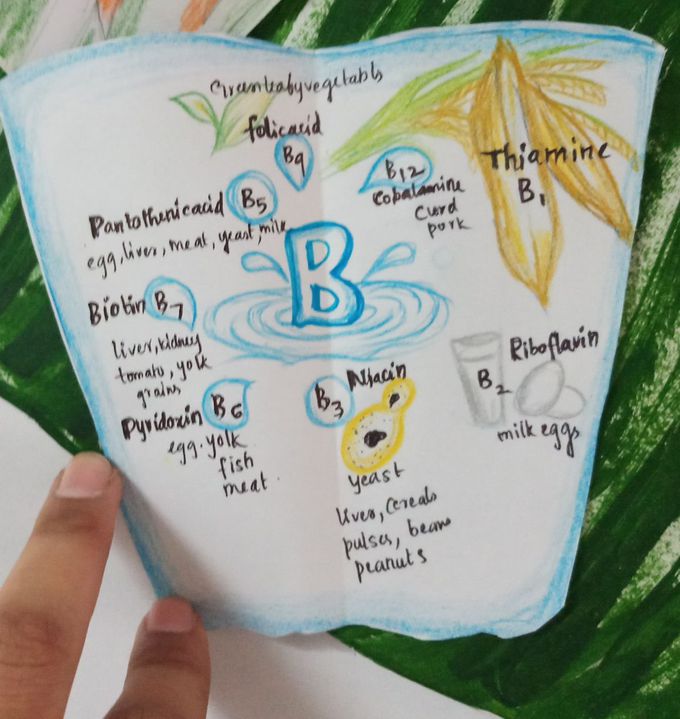 Greenleafyvegetabls
folicacid
B9
B12
Cobalamine
Curd
pork
Thiamine
B1
Pantothenicacid B5
egg, liver, meat, yeast, milk
B
Biotin B7
liver, kidney
tomato, yolk
grains
Pyridoxin B6
egg. yolk
fish
meat
B3 Niacin
yeast
liver, Cereals
pulses, beans
peanuts
Riboflavin
B2
milk eggs